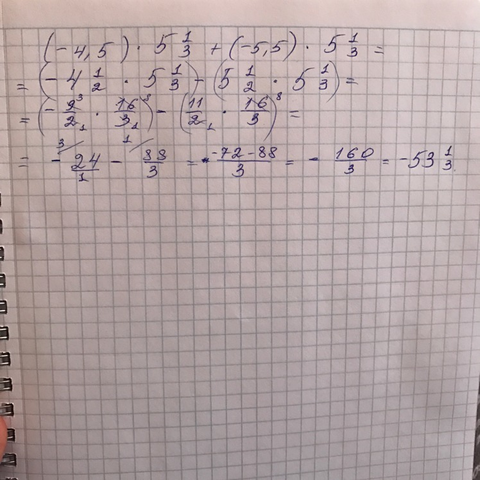 (-4,5) · 5 1/3 + (-5,5) · 5 1/3 =
= (-4 1/2 · 5 1/3) - (5 1/2 · 5 1/3) =
= (-9³/2₁ · 16⁸/3₁) - (11/2₁ · 16⁸/3) =
= - ³24/1 - ¹88/3 = -72-88/3 = - 160/3 = -53 1/3